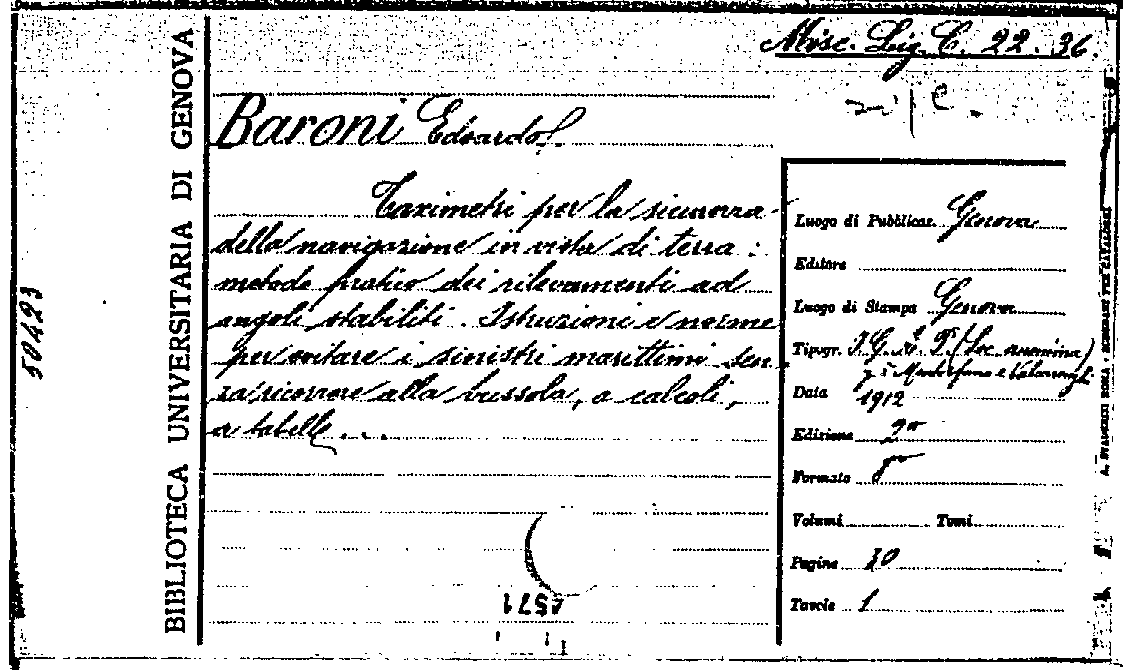 Misc. Lig. C. 22. 36
BIBLIOTECA UNIVERSITARIA DI GENOVA
50423
Baroni Edoardo
Taximetri per la sicurezza
della navigazione in vista di terra:
metodo pratico dei rilevamenti ad
angoli stabiliti. Istruzioni e norme
per evitare i sinistri marittimi sen-
za ricorrere alla bussola, a calcoli,
a tabelle...
Luogo di Pubblicaz. Genova
Editore
Luogo di Stampa Genova
Tipogr. (Soc. anonima)
Data 1912
Edizione 2a
Formato 8°
Volumi Tomi
Pagine 30
Tavole 1